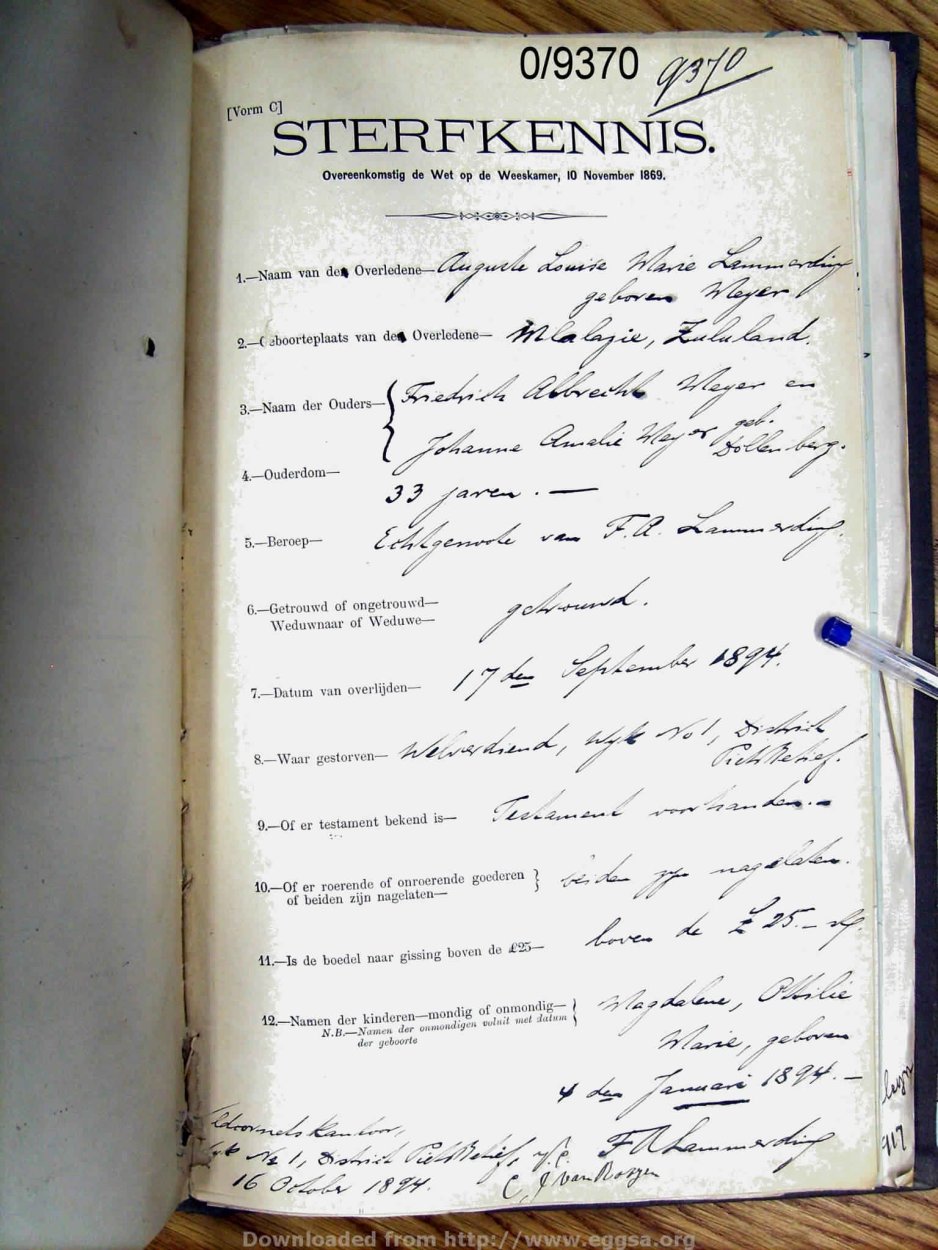 0/9370 9370
[Vorm C]
STERFKENNIS.
Overeenkomstig de Wet op de Weeskamer, 10 November 1869.
1.—Naam van den Overledene— Auguste Louise Marie Lammerding
geboren Meyer
2.—Geboorteplaats van den Overledene— Mlalazie, Zululand.
3.—Naam der Ouders— Friedrich Albrecht Meyer en
Johanne Amalie Meyer geb.
Dollenberg.
4.—Ouderdom—
33 jaren. —
5.—Beroep— Echtgenoote van F. A. Lammerding.
6.—Getrouwd of ongetrouwd—
Weduwnaar of Weduwe— getrouwd.
7.—Datum van overlijden— 17 den September 1894.
8.—Waar gestorven— Welverdiend, Wyk No 1, District
Piet Retief.
9.—Of er testament bekend is— Testament voorhanden. —
10.—Of er roerende of onroerende goederen
of beiden zijn nagelaten— beiden zyn nagelaten.
11.—Is de boedel naar gissing boven de £25— boven de £ 25.–
12.—Namen der kinderen—mondig of onmondig— Magdalene, Ottilie
N.B.—Namen der onmondigen voluit met datum
der geboorte
Marie, geboren
4 den Januari 1894. —
Veldcornets Kantoor,
Wyk No 1, District Piet Retief, F A Lammerding
16 October 1894. C. J. van Rooyen
917
Downloaded from http://www.eggsa.org